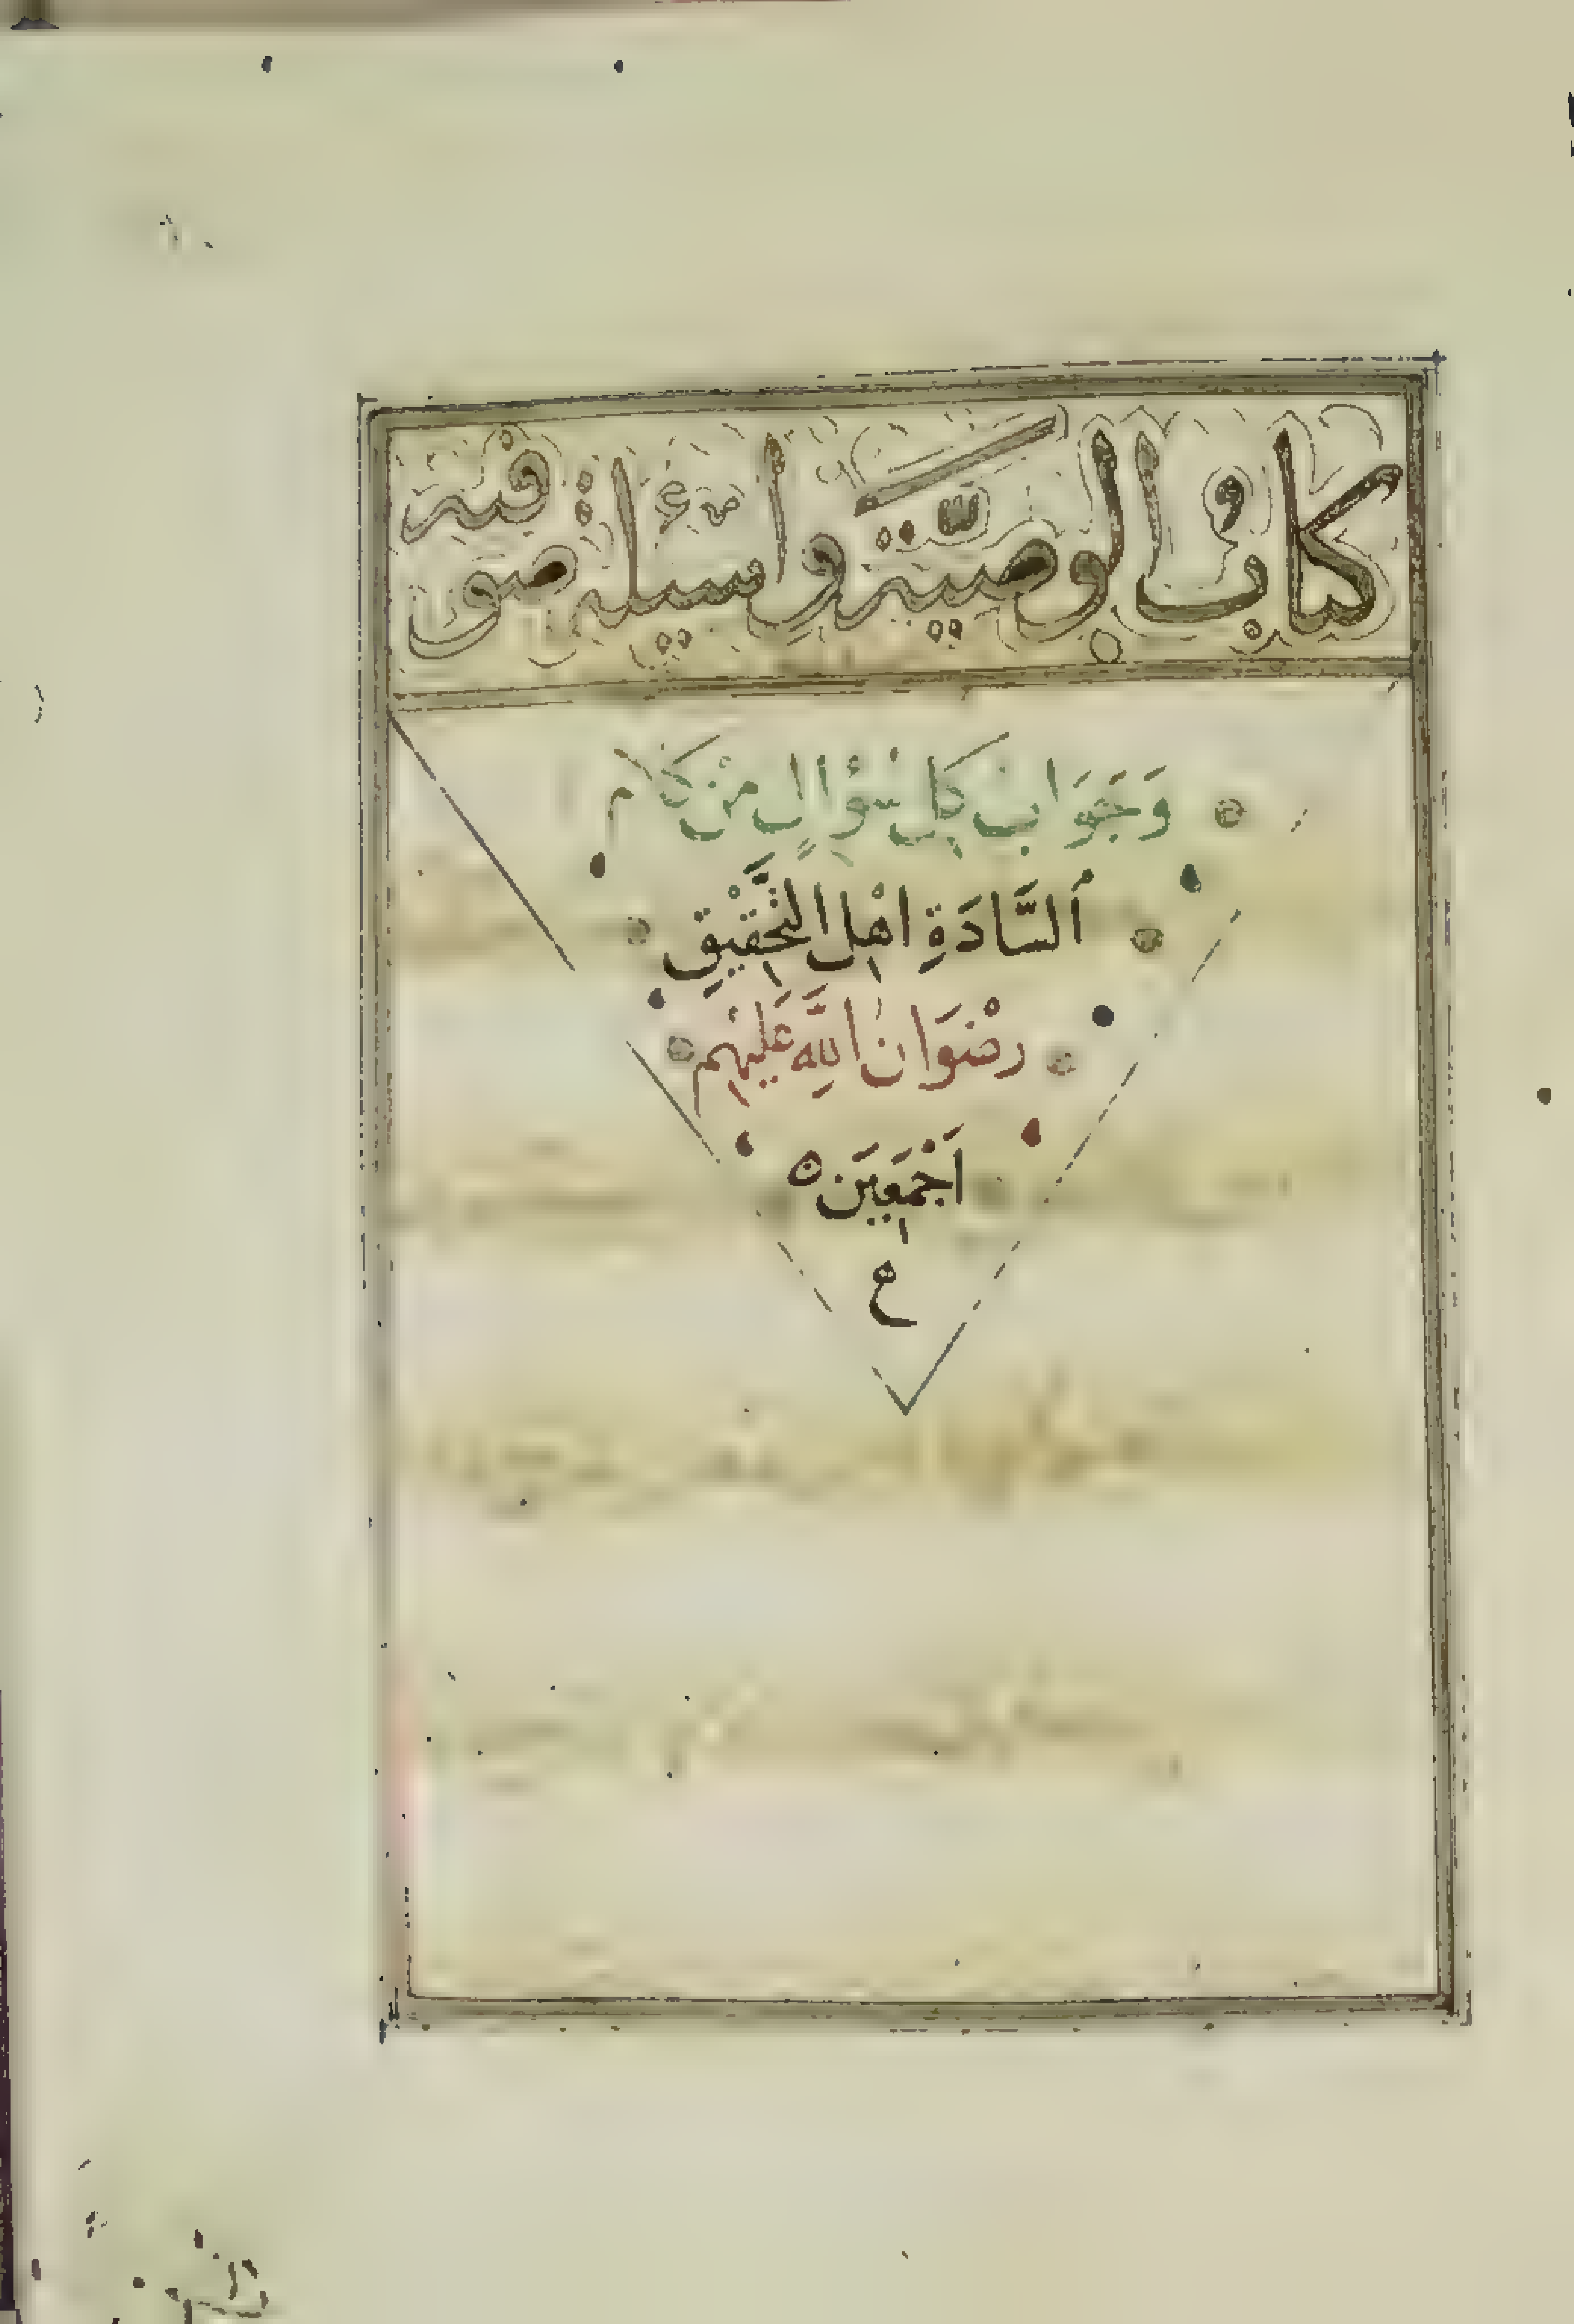 كتاب الوصية واسيلة صوفية
وَجَوَابْ كلِّ سُؤَالٍ مِنْ كَلَام
اَلسَّادَةِ اَهْلِ التَّحْقِيْقِ
رِضْوَانُ اللَّهِ عَلَيْهِم
اَجْمَعِيَن